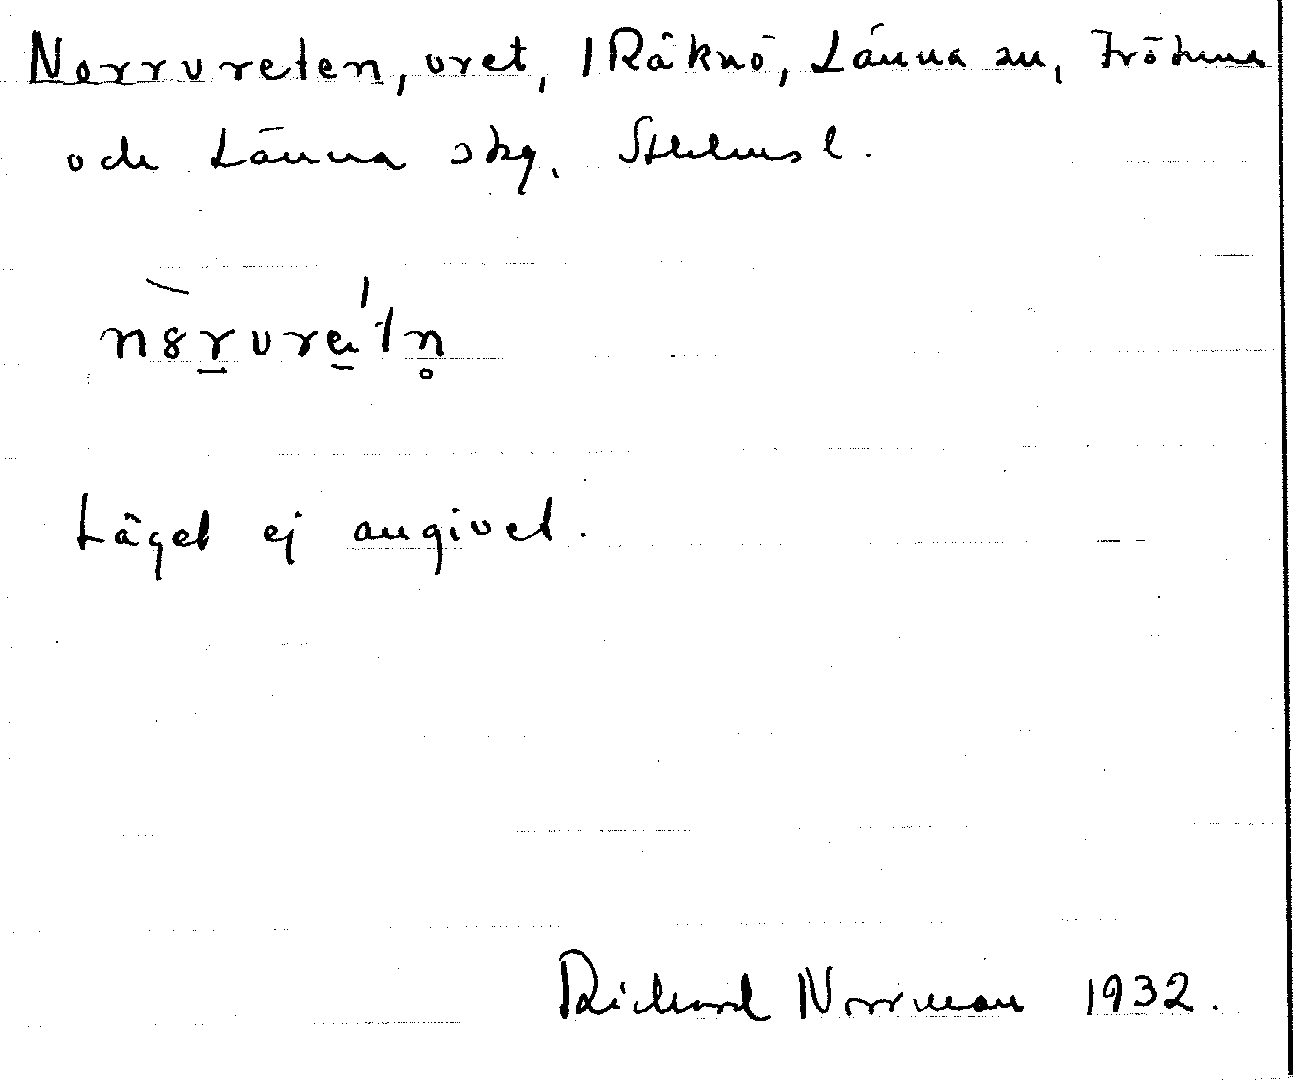 Norrvreten, vret, Råknö, Länna sn, Frötuna
och Länna skg. Sthlms l.
Läget ej angivet.
Richard Norrman 1932.